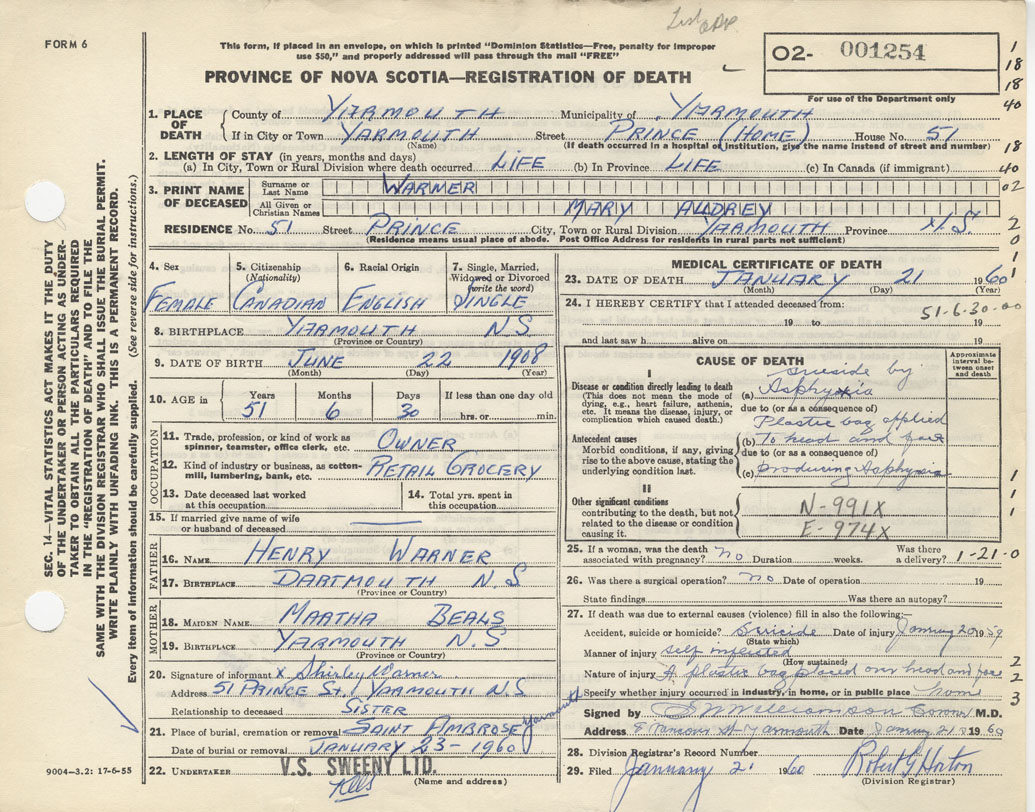 FORM 6
This form, if placed in an envelope, on which is printed "Dominion Statistics—Free, penalty for improper
use $50," and properly addressed will pass through the mail "FREE"
PROVINCE OF NOVA SCOTIA—REGISTRATION OF DEATH
02- 001254
For use of the Department only
SEC. 14—VITAL STATISTICS ACT MAKES IT THE DUTY
OF THE UNDERTAKER OR PERSON ACTING AS UNDER-
TAKER TO OBTAIN ALL THE PARTICULARS REQUIRED
IN THE "REGISTRATION OF DEATH" AND TO FILE THE
SAME WITH THE DIVISION REGISTRAR WHO SHALL ISSUE THE BURIAL PERMIT.
WRITE PLAINLY WITH UNFADING INK. THIS IS A PERMANENT RECORD.
Every item of information should be carefully supplied. (See reverse side for instructions.)
1. PLACE OF DEATH County of YARMOUTH Municipality of YARMOUTH
If in City or Town YARMOUTH Street PRINCE (HOME) House No. 51
(Name) (If death occurred in a hospital or institution, give the name instead of street and number)
2. LENGTH OF STAY (in years, months and days)
(a) In City, Town or Rural Division where death occurred LIFE (b) In Province LIFE (c) In Canada (if immigrant)
3. PRINT NAME OF DECEASED Surname or Last Name WARNER
All Given or Christian Names MARY AUDREY
RESIDENCE No. 51 Street PRINCE City, Town or Rural Division YARMOUTH Province N.S.
(Residence means usual place of abode. Post Office Address for residents in rural parts not sufficient)
1
18
18
40
18
40
02
2
0
1
4. Sex 5. Citizenship (Nationality) 6. Racial Origin 7. Single, Married, Widowed or Divorced (write the word)
FEMALE CANADIAN ENGLISH SINGLE
8. BIRTHPLACE YARMOUTH N S
(Province or Country)
9. DATE OF BIRTH JUNE 22 1908
(Month) (Day) (Year)
10. AGE in Years Months Days If less than one day old
51 6 30 hrs. or min.
OCCUPATION
11. Trade, profession, or kind of work as
spinner, teamster, office clerk, etc. OWNER
12. Kind of industry or business, as cotton-
mill, lumbering, bank, etc. RETAIL GROCERY
13. Date deceased last worked
at this occupation
14. Total yrs. spent in
this occupation
15. If married give name of wife
or husband of deceased
FATHER
16. NAME HENRY WARNER
17. BIRTHPLACE DARTMOUTH N. S
(Province or Country)
MOTHER
18. MAIDEN NAME: MARTHA BEALS
19. BIRTHPLACE YARMOUTH N.S
(Province or Country)
20. Signature of informant x Shirley Warner
Address 51 PRINCE ST. YARMOUTH N.S
Relationship to deceased SISTER
21. Place of burial, cremation or removal SAINT AMBROSE Yarmouth
Date of burial or removal JANUARY 23 - 1960
22. UNDERTAKER V.S. SWEENY LTD.
(Name and address)
9004—3.2: 17-6-55
MEDICAL CERTIFICATE OF DEATH
23. DATE OF DEATH JANUARY 21 1960
(Month) (Day) (Year)
24. I HEREBY CERTIFY that I attended deceased from:
51-6-30-00
19 to 19
and last saw h alive on 19
CAUSE OF DEATH
Approximate interval between onset and death
I
Disease or condition directly leading to death
(This does not mean the mode of
dying, e.g., heart failure, asthenia,
etc. It means the disease, injury, or
complication which caused death.)
Suicide by
(a) Asphyxia
due to (or as a consequence of)
Plastic bag applied
Antecedent causes
Morbid conditions, if any, giving
rise to the above cause, stating the
underlying condition last.
(b) To head and face
due to (or as a consequence of)
(c) producing Asphyxia
II
Other significant conditions
contributing to the death, but not
related to the disease or condition
causing it.
N-991X
E-974X
1
1
1
25. If a woman, was the death
associated with pregnancy? no Duration weeks. Was there
a delivery? 1-21-0
26. Was there a surgical operation? no Date of operation 19
State findings Was there an autopsy?
27. If death was due to external causes (violence) fill in also the following:—
Accident, suicide or homicide? Suicide Date of injury January 20 1959
(State which)
Manner of injury self inflicted
(How sustained)
Nature of injury A plastic bag placed over head and face
Specify whether injury occurred in industry, in home, or in public place home
2
2
3
Signed by Williamson Coroner M.D.
Address St Yarmouth Date January 21 1960
28. Division Registrar's Record Number
29. Filed January 2 1960 Robert G Horton
(Division Registrar)